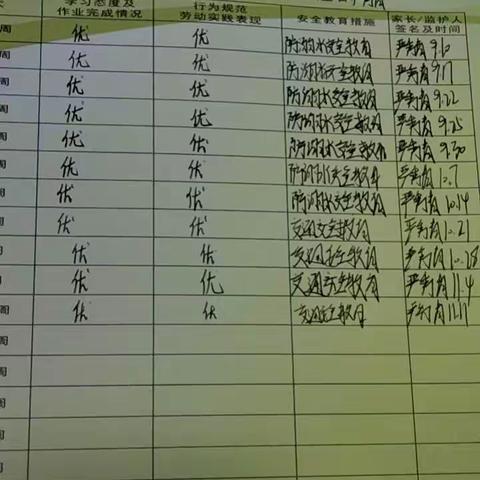 学习态度及 行为规范 安全教育措施 家长/监护人
作业完成情况 劳动实践表现 签名及时间
周 优 优 防溺水安全教育 9.6
优 优 防溺水安全教育 9.17
周 优 优 防溺水安全教育 9.22
周 优 优 防溺水安全教育 9.25
周 优 优 防溺水安全教育 9.30
周 优 优 防溺水安全教育 10.7
周 优 优 防溺水安全教育 10.14
周 优 优 交通安全教育 10.21
周 优 优 交通安全教育 10.28
周 优 优 交通安全教育 11.4
周 优 优 交通安全教育 11.11
周
周
周
周
周